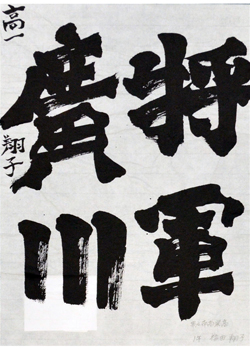 将軍
廣川
高一 翔子